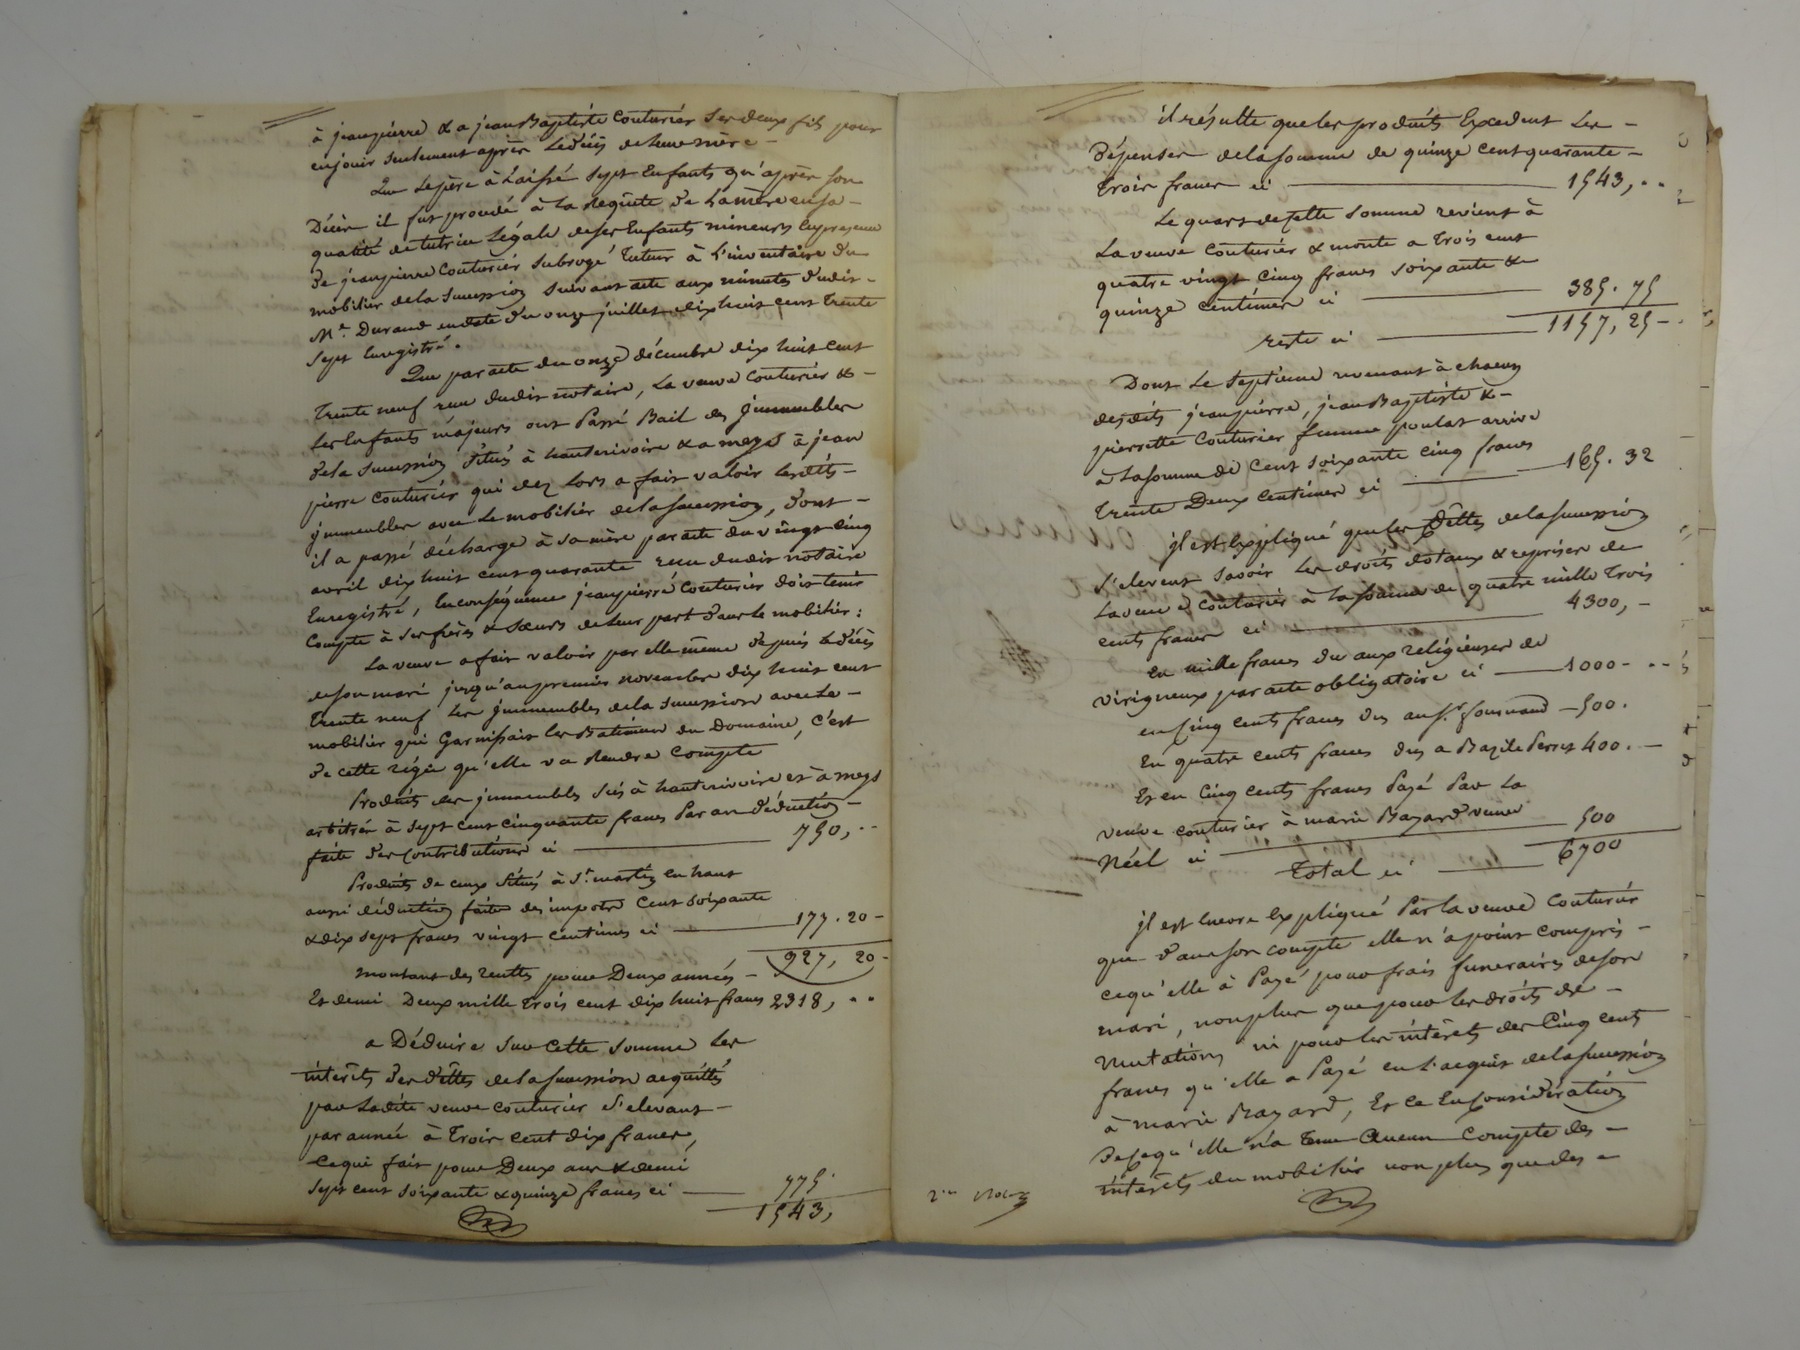 à jeanpierre & a jean Baptiste Couturier ses deux fils pour
en jouir seulement après le décès de leur mère –
Que le père à Laissé sept Enfants qu'après son
Décès il fut procédé à la Requête de La mère en sa –
qualité de tutrice Légale de ses Enfants mineurs en presence
de jeanpierre Couturier Subrogé Tuteur à L'inventaire du
mobilier de la succession suivant acte aux minutes dudit –
Me Durand en date du onze juillet dix huit cent trente
sept Enregistré.
Que par acte du onze décembre dix huit cent
trente neuf reçu dudit notaire, La veuve Couturier & –
Les Enfants majeurs ont Passé Bail des jmmeubles
de la succession situés à hauterivoire & a meys à jean
pierre Couturier qui dez Lors a fait valoir lesdits –
jmmeubles avec Le mobilier de la succession, dont –
il a passé décharge à sa mère par acte du vingt cinq
avril dix huit cent quarante reçu dudit notaire
Enregistré, En conséquence jeanpierre Couturier doit tenir
Compte à ses frères & sœurs de leur part dans le mobilier :
La veuve a fait valoir par elle même depuis le décès
de son mari jusqu'au premier novembre dix huit cent
trente neuf Les jmmeubles de la succession avec Le –
mobilier qui Garnissait les Batiments du Domaine, c'est
de cette régie qu'elle va Rendre Compte
Produits des jmmeubles sis à hauterivoire et à meys
arbitrés à sept cent cinquante francs Par an déduction –
faite des Contributions ci — 750, ..
Produits de ceux situés à St martin en haut
aussi déduction faite des impots cent soixante
& dix sept francs vingt centimes ci — 177. 20 –
927, 20 –
montant des rentes pour Deux années –
Et demi Deux mille trois cent dix huit francs 2318, ..
a Déduire sur cette somme Les
intérêts des dettes de la succession acquittés
par Ladite veuve Couturier s'elevant –
par année à trois cent dix francs,
ce qui fait pour Deux ans & demi
sept cent soixante & quinze francs ci — 775.
1543,
il résulte que les produits Excedent Les –
dépenses de la somme de quinze cent quarante –
trois francs ci — 1543, ..
Le quart de cette somme revient à
La veuve Couturier & monte a trois cent
quatre vingt cinq francs soixante &
quinze centimes ci — 385. 75
reste ci — 1157, 25 –
Dont Le septieme revenant à chacun
desdits jeanpierre, jean Baptiste & –
pierrette Couturier femme poulat arrive
a La somme de Cent soixante cinq francs
trente Deux centimes ci — 165. 32
jl est Expliqué que les dettes de la succession
s'elevent savoir Les droits dotaux & reprises de
La veuve Couturier à la somme de quatre mille trois
cents francs ci — 4300, –
En mille francs du aux religieuses de
virigneux par acte obligatoire ci — 1000 – ..
en Cinq cents francs dus au Sr fournand – 500.
En quatre cents francs dus a Bazile Perret 400. –
Et en Cinq cents francs Payé Par La
veuve couturier à marie Bazard veuve
Néel ci — 500
Total ci — 6700
jl est Encore Expliqué Par La veuve Couturier
que dans son compte elle n'a point compris –
ce qu'elle à Payé pour frais funeraires de son
mari, non plus que pour les droits de –
mutations ni pour les intérêts des Cinq cents
francs qu'elle a Payé en L'acquit de la succession
à marie Bazard, Et ce En Considération
de ce qu'elle n'a tenu Aucun Compte des –
intérêts du mobilier non plus que des –